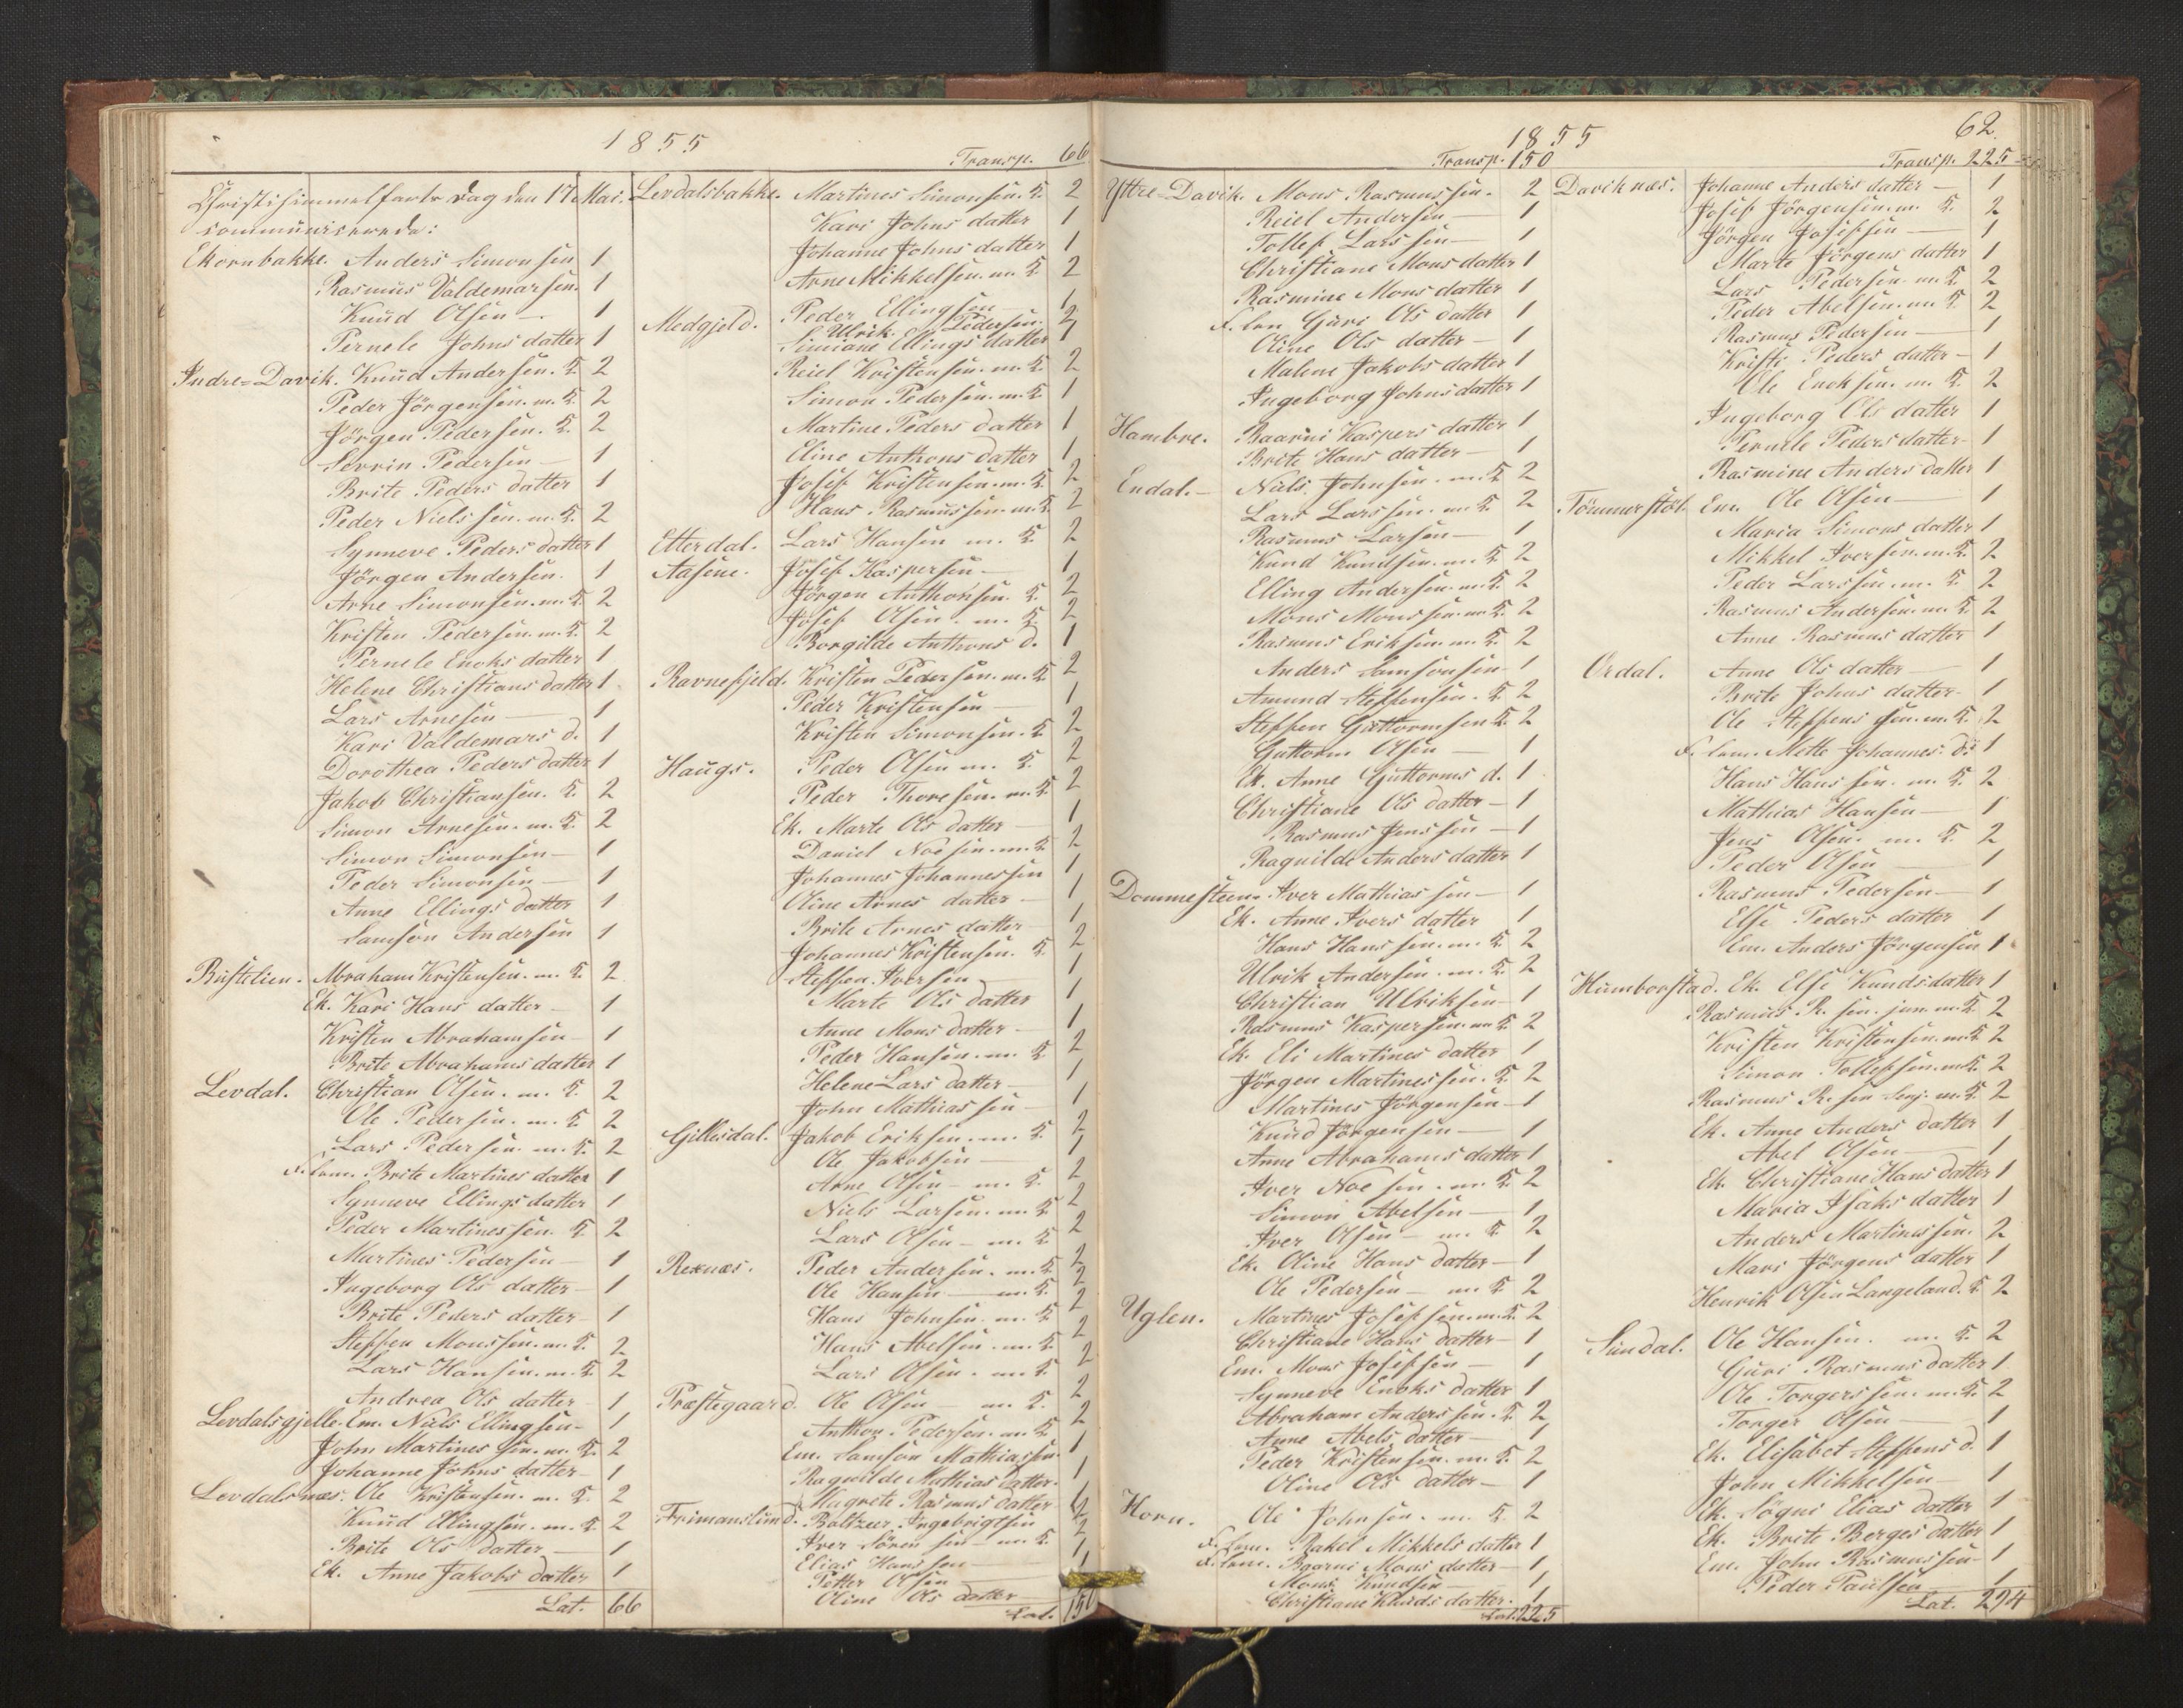 1855
Christi himmelfarts Dag den 17 Mai.
communicerede:
Ekornbakke. Anders Simonsen 1
Rasmus Valdemarsen. 1
Knud Olsen - 1
Pernele Johns datter 1
Indre-Davik. Knud Andersen. K. 2
Peder Jörgensen. m. K. 2
Jörgen Pedersen. K. 2
Sevrin Pedersen - 1
Brite Peders datter 1
Peder Nielssen. m. K. 2
Synneve Peders datter 1
Jörgen Andersen. 1
Arne Simonsen. m. K. 2
Kristen Pedersen. m. K. 2
Pernele Enoks datter 1
Helene Christians datter 1
Lars Arnesen - 1
Kari Valdemars d. 1
Dorothea Peders datter 1
Jakob Christiansen. K. 2
Simon Arnesen. m. K. 2
Simon Simonsen - 1
Peder Simonsen - 1
Anne Ellings datter 1
Samson Andersen 1
Rustelien. Abraham Kristensen. m. K. 2
Ek. Kari Hans datter - 1
Kristen Abrahamsen - 1
Brite Abrahams datter 1
Levdal. Christian Olsen. m. K. 2
Ole Pedersen. m. K. 2
Lars Pedersen. m. K. 2
F. lem. Brite Martines datter 1
Synneve Ellings datter 1
Peder Martinessen. K. 2
Martines Pedersen - 1
Ingeborg Ols datter - 1
Brite Peders datter - 1
Steffen Monssen. m. K. 2
Lars Hansen. m. K. 2
Andrea Ols datter - 1
Levdalsgjelle. Em. Niels Ellingsen - 1
John Martines sen. m. K. 2
Johanne Johns datter - 1
Levdalsnæs. Ole Kristensen. m. K. 2
Knud Ellingsen. m. K. 2
Brite Ols datter - 1
Ek. Anne Jakobs datter 1
Lat. 66
Transp. 66
Levdalsbakke. Martines Simonsen. K. 2
Kari Johns datter 1
Johanne Johns datter 1
Arne Mikkelsen. m. K. 2
Medgjeld. Peder Ellingsen 1
Ulrik Pedersen. 2
Simiane Ellings datter 1
Reiel Kristensen. m. K. 2
Simon Pedersen. m. K. 1
Martine Peders datter 1
Eline Anthons datter 1
Josef Kristensen. m. K. 2
Hans Rasmussen. m. K. 2
Etterdal. Lars Hansen m. K. 2
Aasene. Josef Kaspersen - 1
Jörgen Anthonsen. K. 2
Josef Olsen. m. K. 2
Borgilde Anthons d. 1
Ravnefjeld. Kristen Pedersen. m. K. 2
Peder Kristensen - 1
Kristen Simonsen. K. 2
Haugs. Peder Olsen m. K. 2
Peder Thoresen. m. K. 2
Ek. Marte Ols datter - 1
Daniel Noesen. m. K. 2
Johannes Johannessen 1
Oline Arnes datter - 1
Brite Arnes datter 1
Johannes Kristensen. K. 2
Steffen Iversen - 1
Marte Ols datter 1
Anne Mons datter - 1
Peder Hansen. m. K. 2
Helene Lars datter - 1
John Mathiassen - 1
Gillesdal. Jakob Eriksen. m. K. 2
Ole Jakobsen - 1
Arne Olsen - m. K. 2
Niels Larsen. m. K. 2
Lars Olsen - m. K. 2
Rexnæs. Peder Andersen. m. K. 2
Ole Hansen - m. K. 2
Hans Johnsen. m. K. 2
Hans Abelsen. m. K. 2
Lars Olsen. m. K. 2
Præstegaard. Ole Olsen - m. K. 2
Anthon Pedersen. m. K. 2
Em. Samson Mathiassen 1
Ragnilde Mathias datter. 1
Magrete Rasmus datter 1
Frimanslund. Baltzer Ingebrigtsen 2
Iver Sörensen - m. K. 2
Elias Hanssen - 1
Petter Olsen
Oline Ols datter
Lat. 150
62.
1855
Transp. 150
Yttre-Davik. Mons Rasmussen. 2
Reiel Andersen - 1
Tollef Larssen - 1
Christiane Mons datter 1
Rasmine Mons datter 1
F. lem Guri Ols datter 1
Oline Ols datter - 1
Malene Jakobs datter 1
Ingeborg Johns datter 1
Hambre. Baarni Kaspers datter 1
Brite Hans datter - 1
Endal. - Niels Johnsen. m. K. 2
Lars Larssen. m. K. 2
Rasmus Larsen - 1
Knud Knudsen. m. K. 2
Elling Andersen. m. K. 2
Mons Monssen. m. K. 2
Rasmus Eriksen. m. K. 2
Anders Samsonsen - 1
Amund Steffensen. K. 2
Steffen Guttormsen K. 2
Guttorm Olsen - 1
Ek. Anne Guttorms d. 1
Christiane Ols datter - 1
Rasmus Jenssen - 1
Ragnilde Anders datter 1
Dommesteen. Iver Mathiassen - 1
Ek. Anne Ivers datter 1
Hans Hanssen. m. K. 2
Ulrik Andersen. m. K. 2
Christian Ulriksen - 1
Rasmus Kaspersen. m. K. 2
Ek. Eli Martines datter 1
Jörgen Martinessen. K. 2
Martines Jörgensen - 1
Knud Jörgensen - 1
Anne Abrahams datter 1
Iver Noesen. m. K. 2
Simon Abelsen - 1
Iver Olsen - m. K. 2
Ek. Oline Hans datter - 1
Ole Pedersen - m. K. 2
Uglen. Martines Josefsen. m. K. 2
Christiane Hans datter - 1
Em. Mons Josefsen - 1
Synneve Enoks datter 1
Abraham Anderssen. K. 2
Anne Abels datter - 1
Peder Kristensen. m. K. 2
Oline Ols datter - 1
Horn. Ole Johnsen. m. K. 2
F. lem. Rakel Mikkels datter 1
F. lem. Baarni Mons datter - 1
Mons Knudsen - 1
Christiane Knuds datter. 1
Lat. 225
Transp. 225
Daviknæs. Johanne Anders datter - 1
Josef Jörgensen. m. K. 2
Jörgen Josefsen - 1
Marte Jörgens datter 1
Lars Pedersen. m. K. 2
Peder Abelsen. m. K. 2
Rasmus Pedersen - 1
Kristi Peders datter - 1
Ole Enoksen. m. K. 2
Ingeborg Ols datter 1
Pernele Peders datter - 1
Rasmine Anders datter 1
Tömmerstöl. Em. Ole Olsen - 1
Maria Simons datter 1
Mikkel Iversen. m. K. 2
Peder Larssen. m. K. 2
Rasmus Andersen. m. K. 2
Anne Rasmus datter 1
Ordal. Anne Ols datter - 1
Brite Johns datter - 1
Ole Steffens sen. m. K. 2
F. lem. Mette Johannes. d. 1
Hans Hanssen. m. K. 2
Mathias Hansen - 1
Jens Olsen. m. K. 2
Peder Olsen - 1
Rasmus Pedersen - 1
Else Peders datter 1
Em. Anders Jörgensen 1
Humborstad. Ek. Else Knuds datter 1
Rasmus R. sen. jun. m. K. 2
Kristen Kristensen. m. K. 2
Simon Tollefsen. m. K. 2
Rasmus R. sen senj. m. K. 2
Ek. Anne Anders datter 1
Abel Olsen - 1
Ek. Christiane Hans datter 1
Maria Isaks datter 1
Anders Martinessen. 2
Mari Jörgens datter 1
Henrik Olsen Langeland. K. 2
Sundal. Ole Hansen. m. K. 2
Guri Rasmus datter 1
Ole Torgerssen. m. K. 2
Torger Olsen - 1
Ek. Elisabet Steffens d. 1
John Mikkelsen - 1
Ek. Sögni Elias datter 1
Ek. Brite Berges datter 1
Em. John Rasmussen - 1
Peder Paulsen 1
Lat. 294